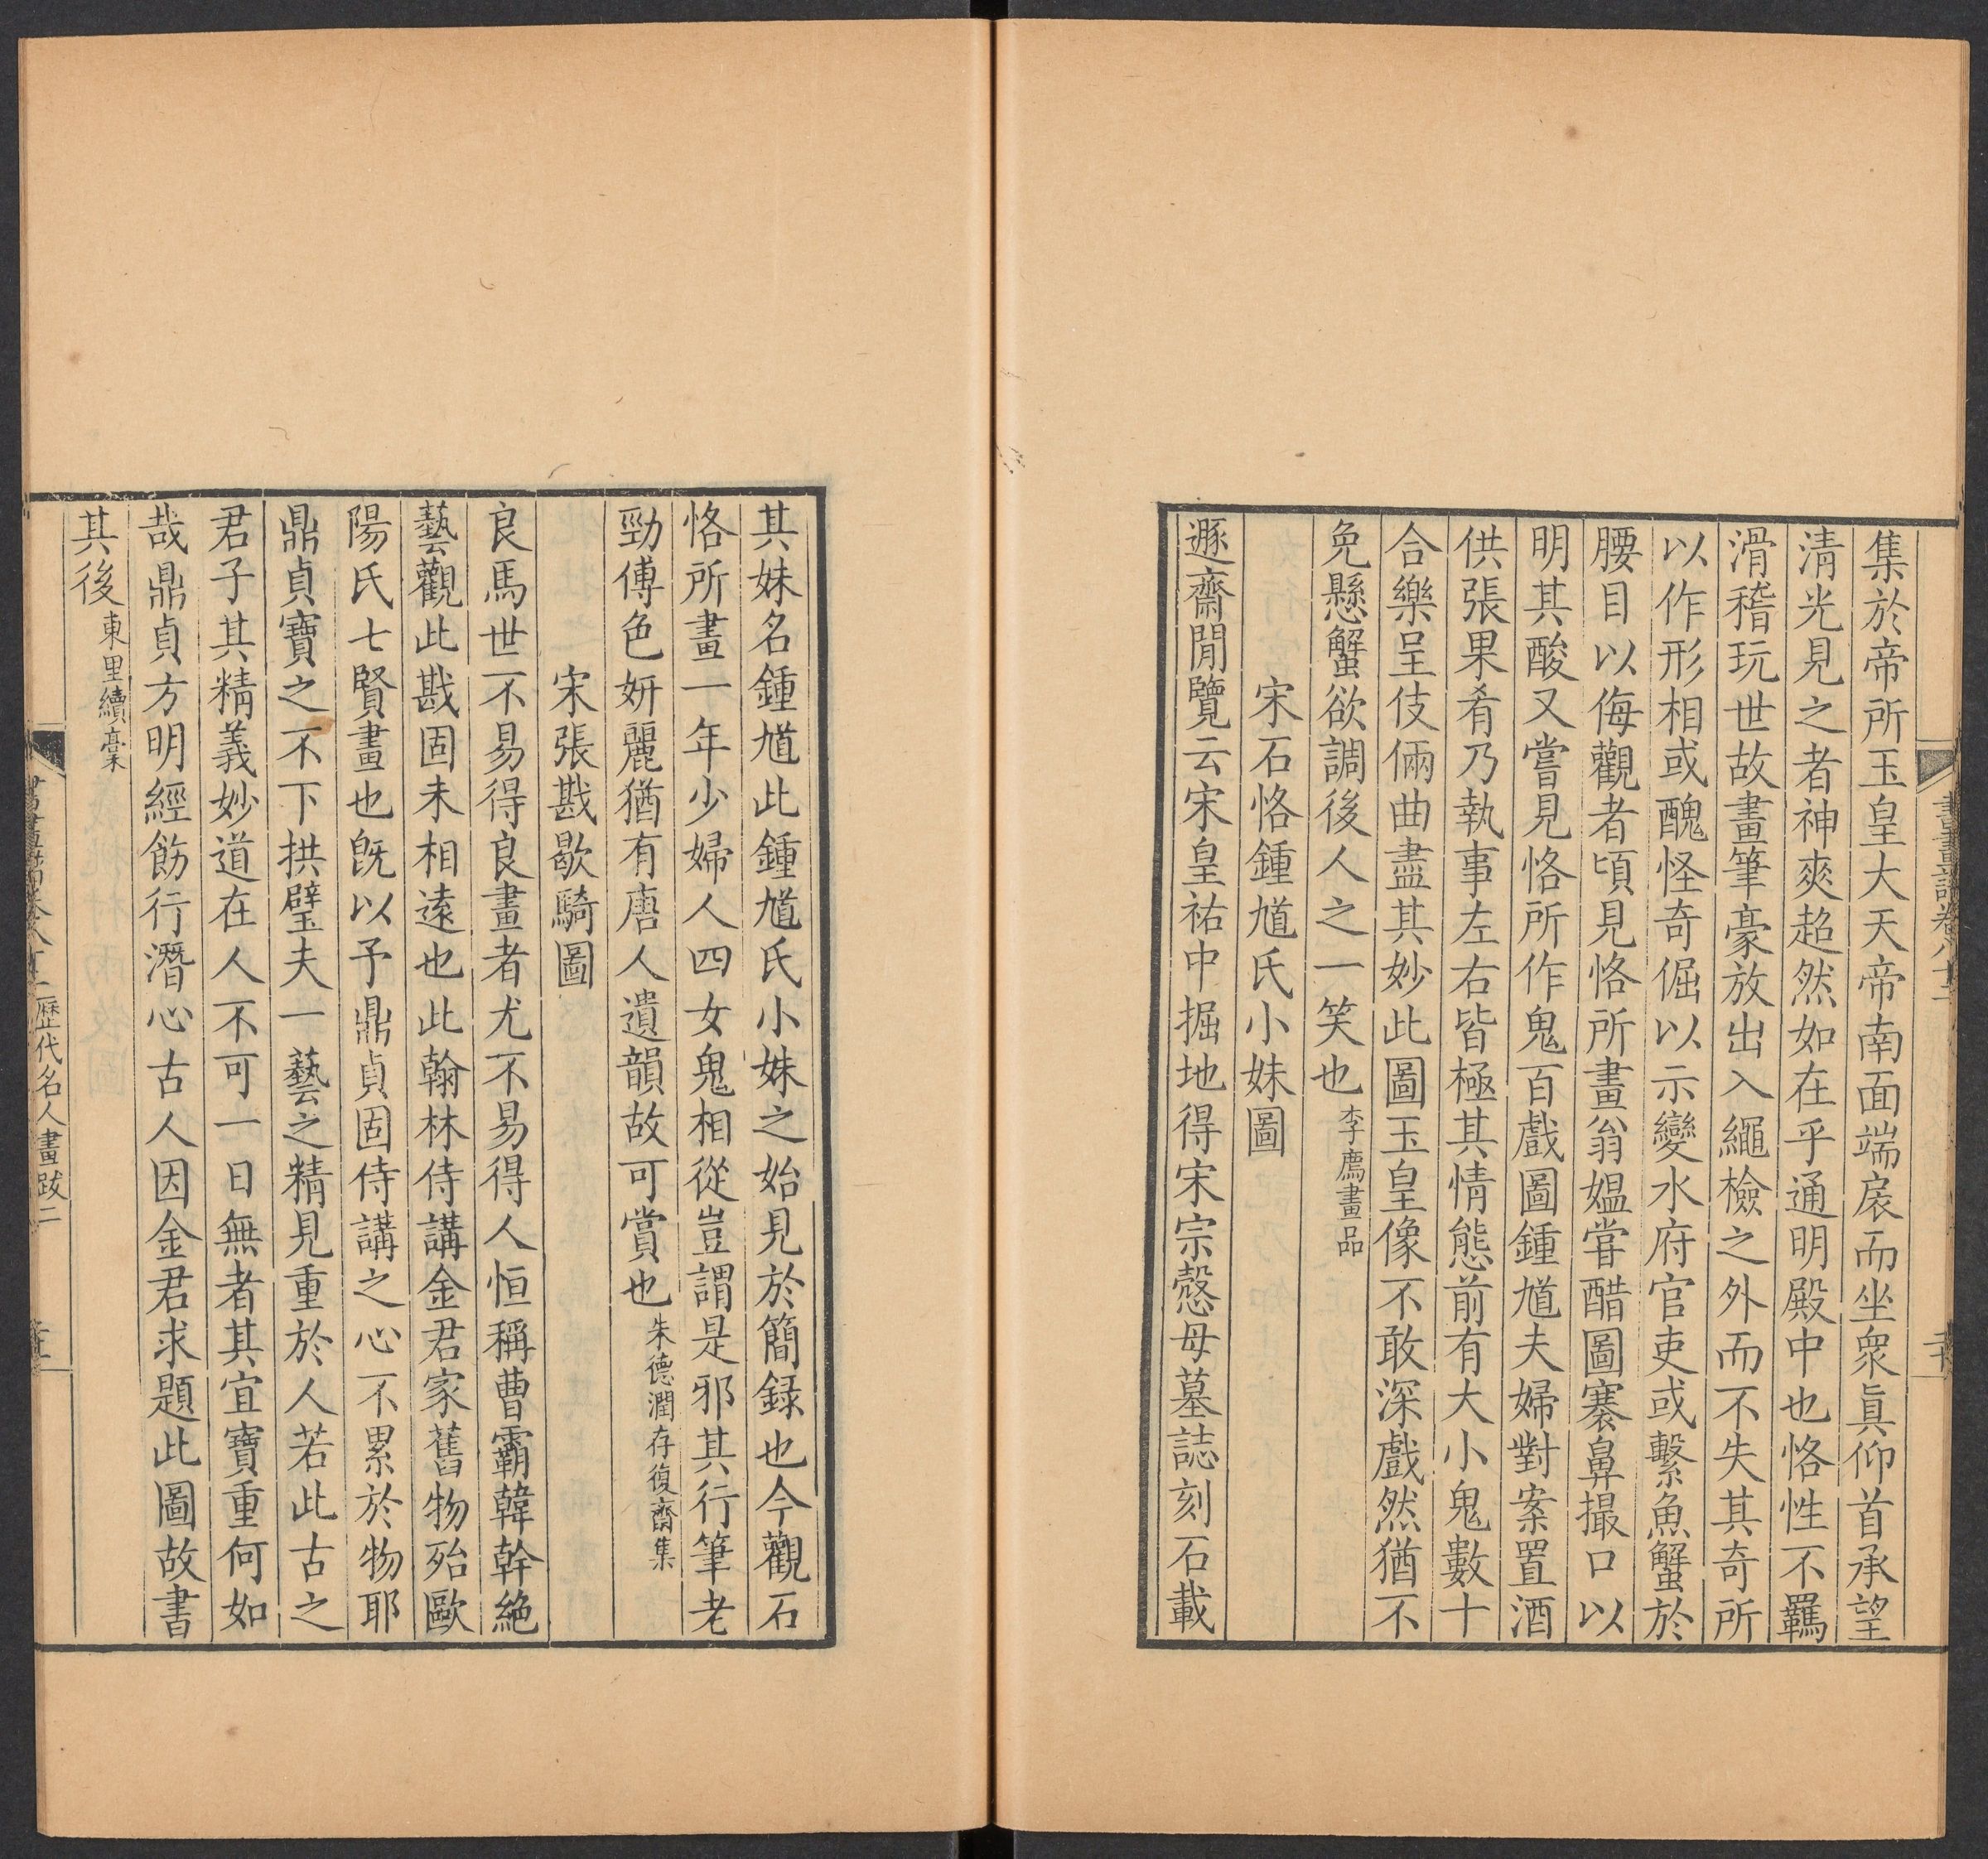 書畫譜卷八十二
集於帝所玉皇大天帝南面端扆而坐衆眞仰首承望
清光見之者神爽超然如在乎通明殿中也恪性不羈
滑稽玩世故畫筆豪放出入繩檢之外而不失其奇所
以作形相或醜怪奇倔以示變水府官吏或繫魚蟹於
腰目以侮觀者頃見恪所畫翁媼嘗醋圖褰鼻撮口以
明其酸又嘗見恪所作鬼百戲圖鍾馗夫婦對案置酒
供張果肴乃執事左右皆極其情態前有大小鬼數十
合樂呈伎倆曲盡其妙此圖玉皇像不敢深戲然猶不
免懸蟹欲調後人之一笑也李廌畫品
宋石恪鍾馗氏小妹圖
遯齋閒覽云宋皇祐中掘地得宋宗慤母墓誌刻石載
其妹名鍾馗此鍾馗氏小妹之始見於簡録也今觀石
恪所畫一年少婦人四女鬼相從豈謂是邪其行筆老
勁傅色妍麗猶有唐人遺韻故可賞也朱德潤存復齋集
宋張戡歇騎圖
良馬世不易得良畫者尤不易得人恒稱曹霸韓幹絶
藝觀此戡固未相遠也此翰林侍講金君家舊物殆歐
陽氏七賢畫也旣以予鼎貞固侍講之心不累於物耶
鼎貞寶之不下拱璧夫一藝之精見重於人若此古之
君子其精義妙道在人不可一日無者其宜寶重何如
哉鼎貞方明經飭行潛心古人因金君求題此圖故書
其後東里續稾
歷代名人畫跋二